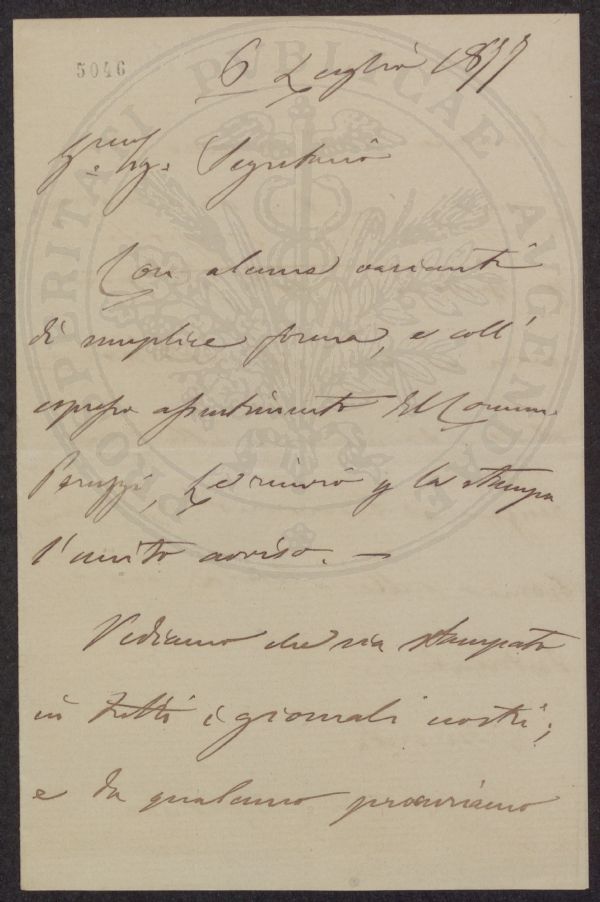 5046
PROSPERITATI PUBLICAE AUGENDAE
6 Luglio 1877
Sig. Segretario
Con alcune varianti
di semplice forma, e coll'
espresso assentimento del Comm.
Peruzzi, Le rinvio p la stampa
l'unito avviso. —
Vediamo che sia stampato
in tutti i giornali nostri;
e da qualcuno procuriamo